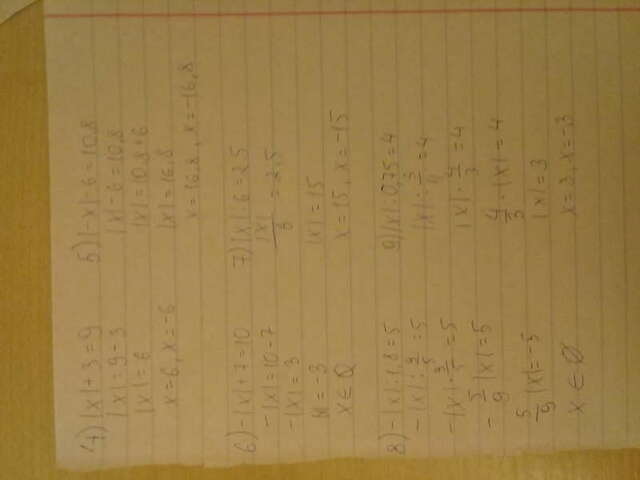 4) |x|+3=9
|x|=9-3
|x|=6
x=6, x=-6
5) |-x|-6=10,8
|x|-6=10,8
|x|=10,8+6
|x|=16,8
x=16,8, x=-16,8
6) -|x|+7=10
-|x|=10-7
-|x|=3
|x|=-3
x∈∅
7) |x|:6=2,5
|x|/6=2,5
|x|=15
x=15, x=-15
8) -|x|:1,8=5
-|x|:9/5=5
-5/9|x|=5
5/9|x|=-5
x∈∅
9) |x|:0,75=4
|x|:3/4=4
|x|·4/3=4
4/3·|x|=4
|x|=3
x=3, x=-3